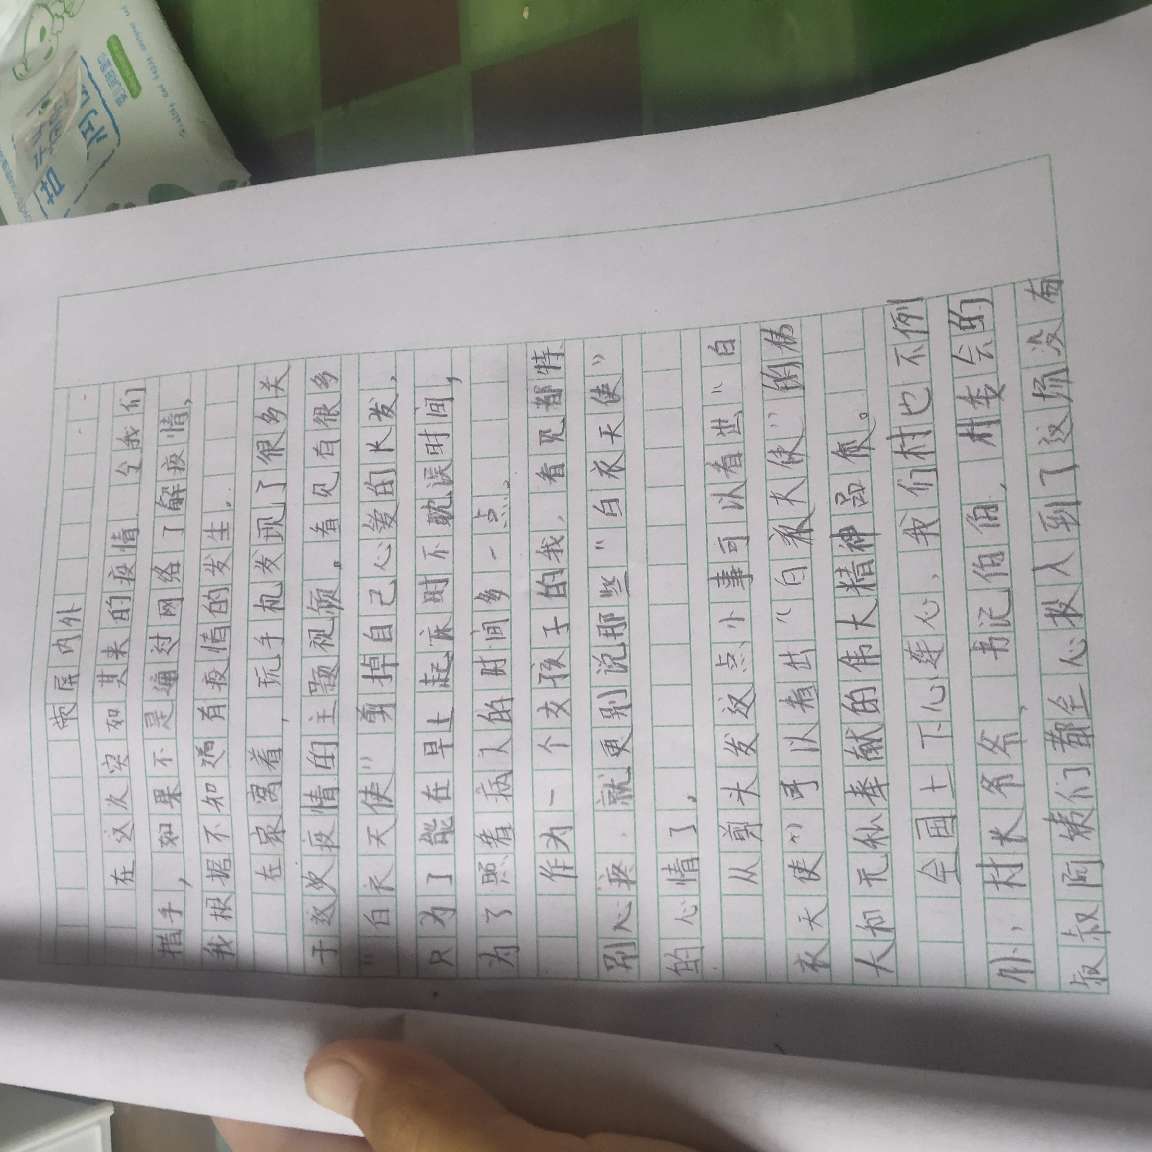 荧屏内外
在这次突如其来的疫情,令我们
措手,如果不是通过网络了解疫情,
我根据不知道有疫情的发生。
在家窝着,玩手机发现了很多关
于这次疫情的主题视频。看见有很多
"白衣天使"剪掉自己心爱的长发,
只为了能在早上起床时不耽误时间,
为了照看病人的时间多一点。
作为一个女孩子的我,看见都特
别心疼,就更别说那些"白衣天使"
的心情了。
从剪头发这点小事可以看出"白
衣天使"可以看出"白衣天使"的伟
大和无私奉献的伟大精神品质。
全国上下心连心,我们村也不例
外,村长爷爷,书记伯伯,村委会的
叔叔阿姨们都全心投入到了这场没有